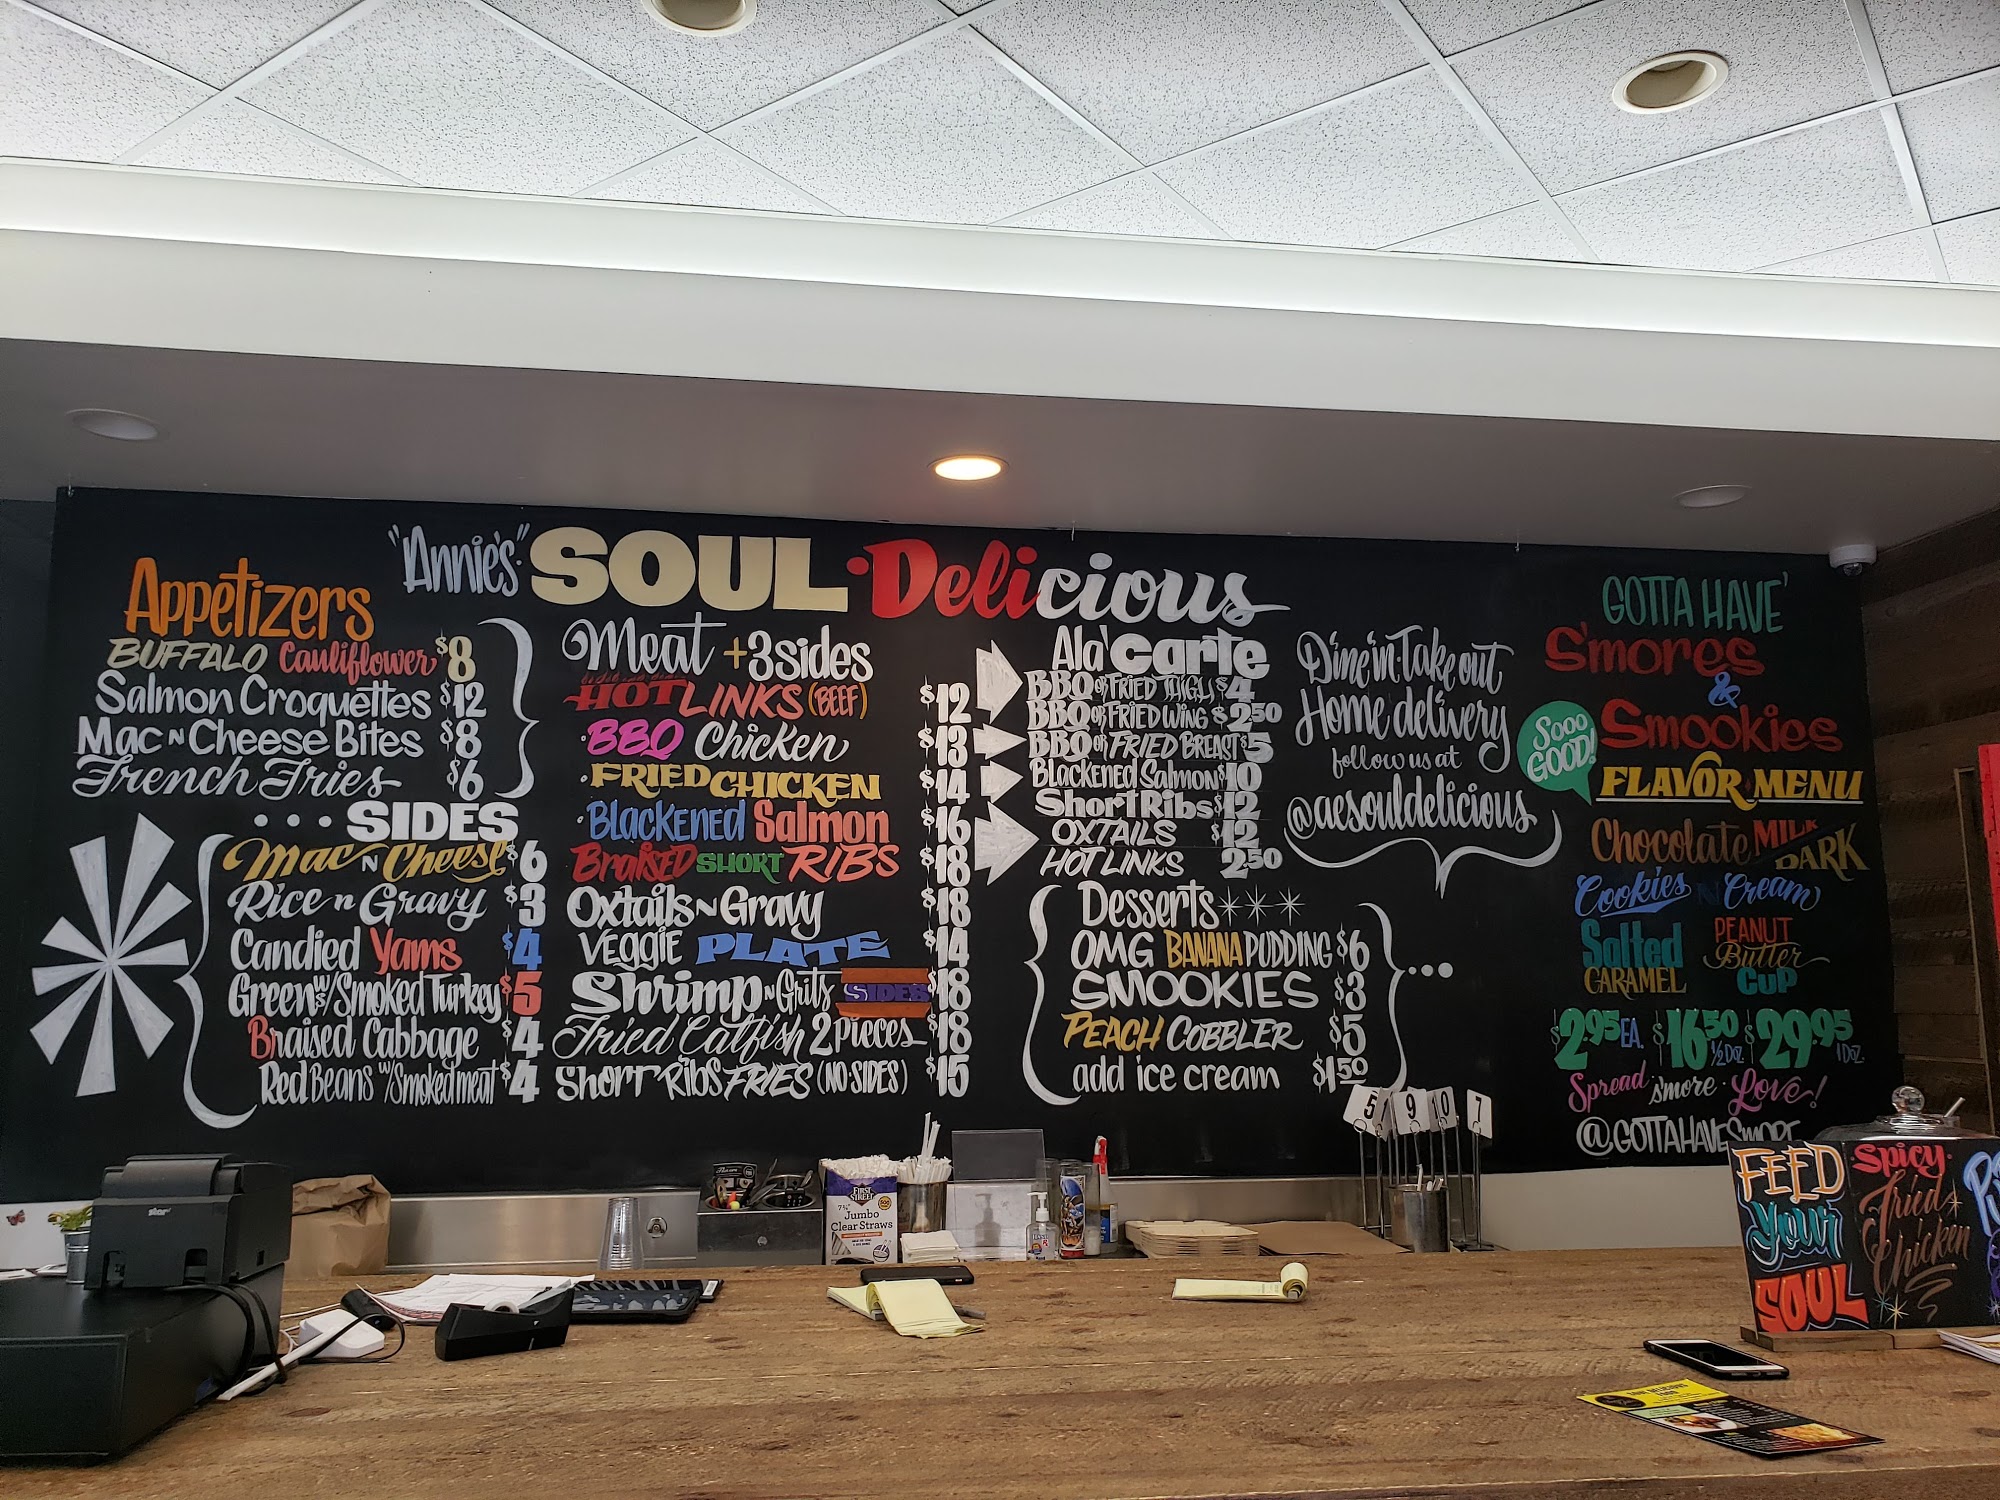 "Annie's" SOUL Delicious
Appetizers
BUFFALO Cauliflower $8
Salmon Croquettes $12
Mac N Cheese Bites $8
French Fries $6
SIDES
Mac N Cheese $6
Rice n Gravy $3
Candied Yams $4
Greens w/Smoked Turkey $5
Braised Cabbage $4
Red Beans w/Smoked meat $4
Meat + 3 sides
HOT LINKS (BEEF) $12
BBQ Chicken $13
FRIED CHICKEN $14
Blackened Salmon $16
Braised SHORT RIBS $18
Oxtails N Gravy $18
VEGGIE PLATE $14
Shrimp N Grits SIDES $18
Fried Catfish 2 pieces $18
Short Ribs FRIES (NO-SIDES) $15
Ala' Carte
BBQ or FRIED THIGH $4
BBQ or FRIED WING $2.50
BBQ or FRIED BREAST $5
Blackened Salmon $10
Short Ribs $12
OXTAILS $12
HOT LINKS 2.50
Desserts
OMG BANANA PUDDING $6
SMOOKIES $3
PEACH COBBLER $5
add ice cream $1.50
Dine in · Take out
Home delivery
follow us at
@aesouldelicious
GOTTA HAVE'
S'mores
&
Smookies
Sooo
GOOD!
FLAVOR MENU
Chocolate MILK
DARK
Cookies N Cream
Salted
CARAMEL
PEANUT
Butter
CUP
$2.95 EA. $16.50 1/2 DOZ. $29.95 1 DOZ.
Spread s'more Love!
@GOTTAHAVESMORE
5 9 10 7
FEED
Your
SOUL
Spicy
Fried
Chicken
star
FIRST
STREET
7¾"
Jumbo
Clear Straws